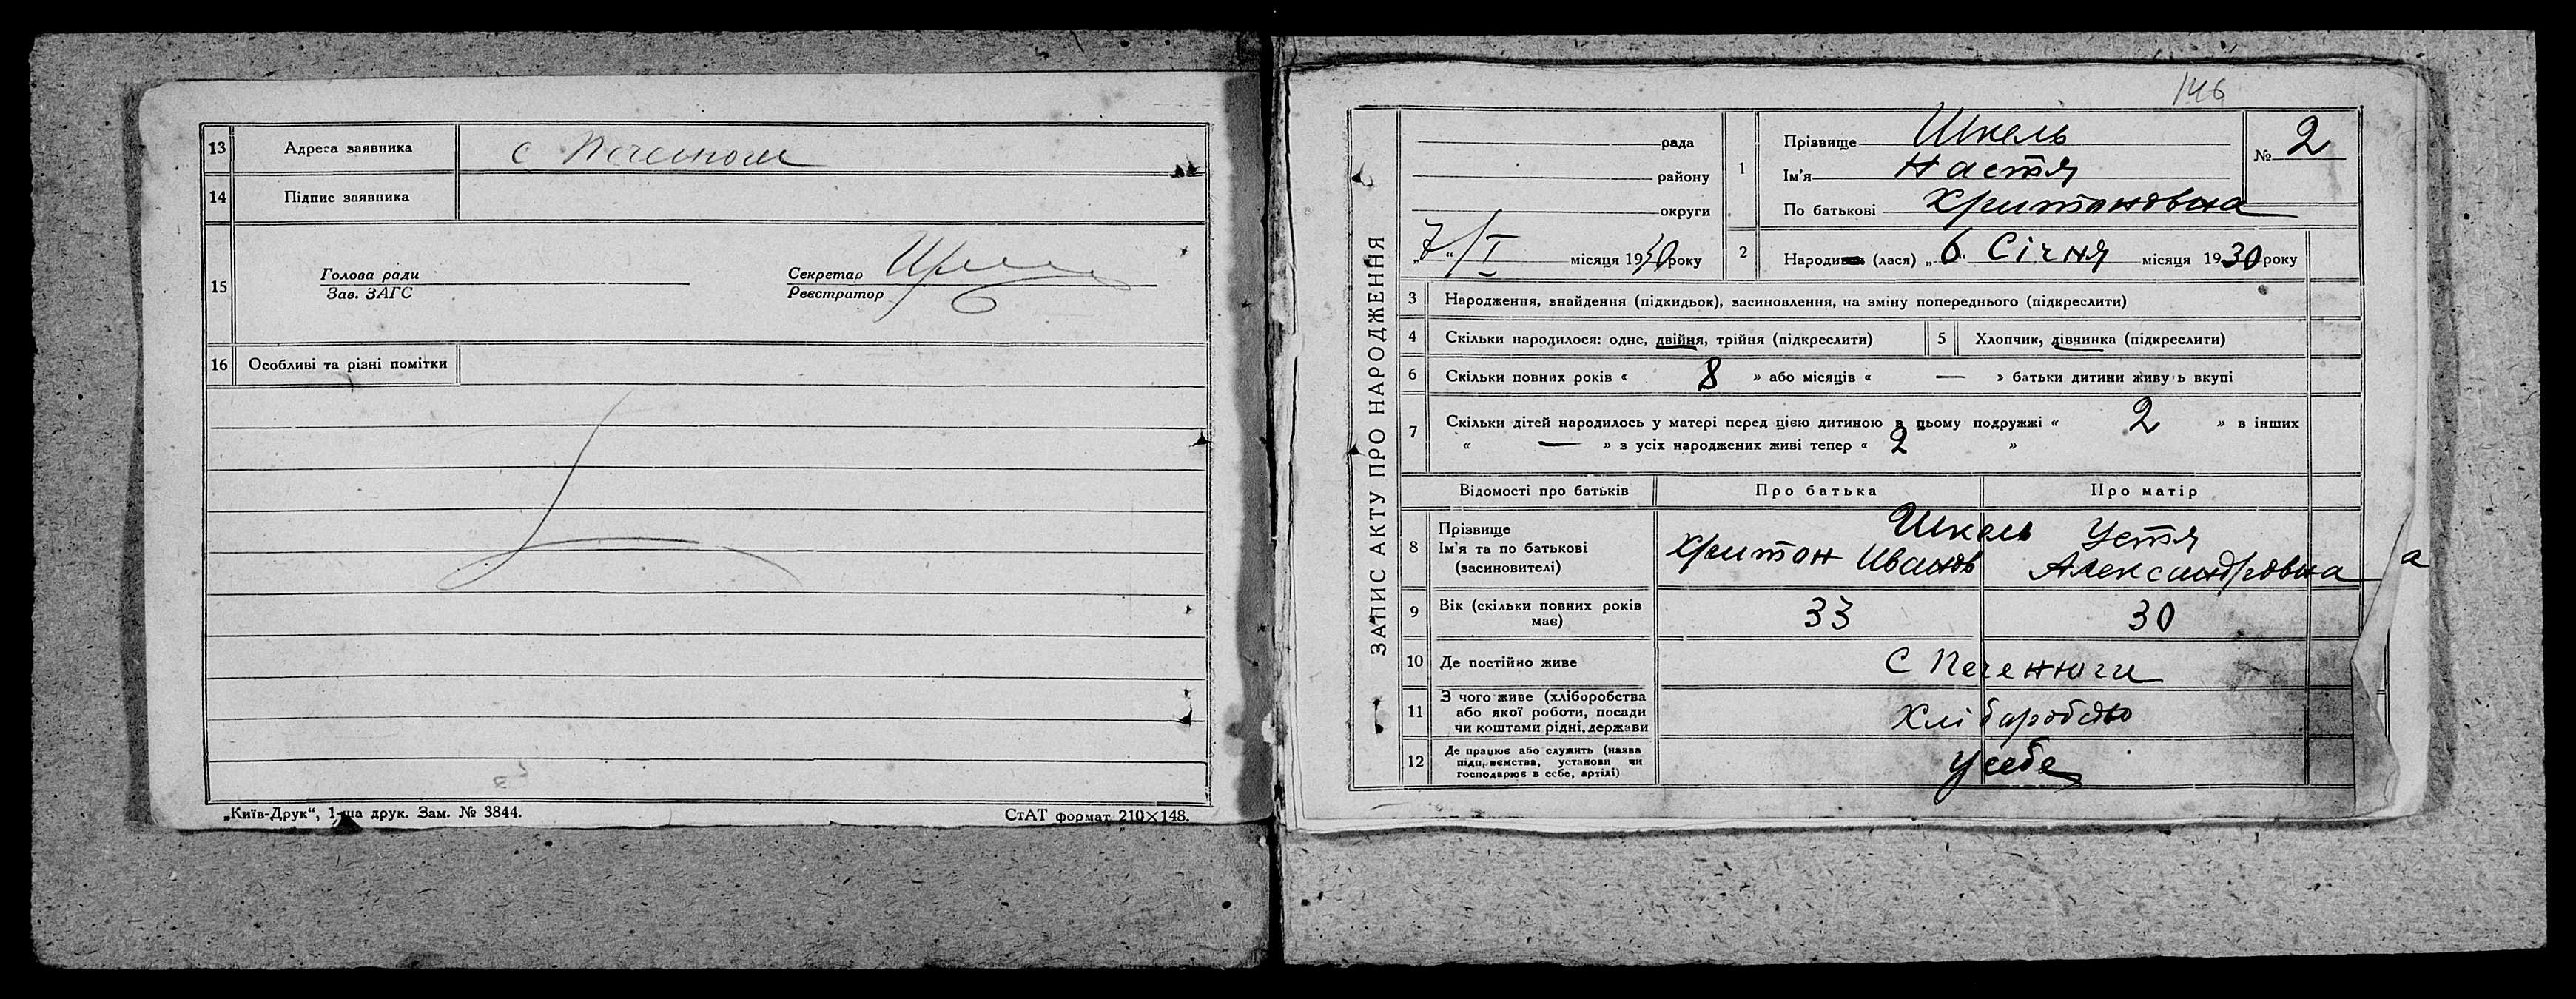 13 Адреса заявника с Печенюги
14 Підпис заявника
15 Голова ради
Зав. ЗАГС
Секретар
Реєстратор
16 Особливі та різні помітки
„Київ-Друк“, 1-ша друк. Зам. № 3844.
СтАТ формат 210×148.
146
ЗАПИС АКТУ ПРО НАРОДЖЕННЯ
рада
району
округи
„7“/I місяця 1930 року
1 Прізвище Шкель
Ім'я Настя
По батькові Хритоновна
№ 2
2 Народився (лася) „6“ Січня місяця 1930 року
3 Народження, знайдення (підкидьок), засиновлення, на зміну попереднього (підкреслити)
4 Скільки народилося: одне, двійня, трійня (підкреслити)
5 Хлопчик, дівчинка (підкреслити)
6 Скільки повних років « 8 » або місяців « — » батьки дитини живуть вкупі
7 Скільки дітей народилось у матері перед цією дитиною в цьому подружжі « 2 » в інших
« — » з усіх народжених живі тепер « 2 »
Відомості про батьків Про батька Про матір
8 Прізвище
Ім'я та по батькові
(засиновителі)
Шкель
Хритон Иванов
Устя
Александровна
а
9 Вік (скільки повних років
має) 33 30
10 Де постійно живе С Печенюги
11 З чого живе (хліборобства
або якої роботи, посади
чи коштами рідні, держави
Хлібаробство
12 Де працює або служить (назва
підприємства, установи чи
господарює в себе, артілі)
у себе